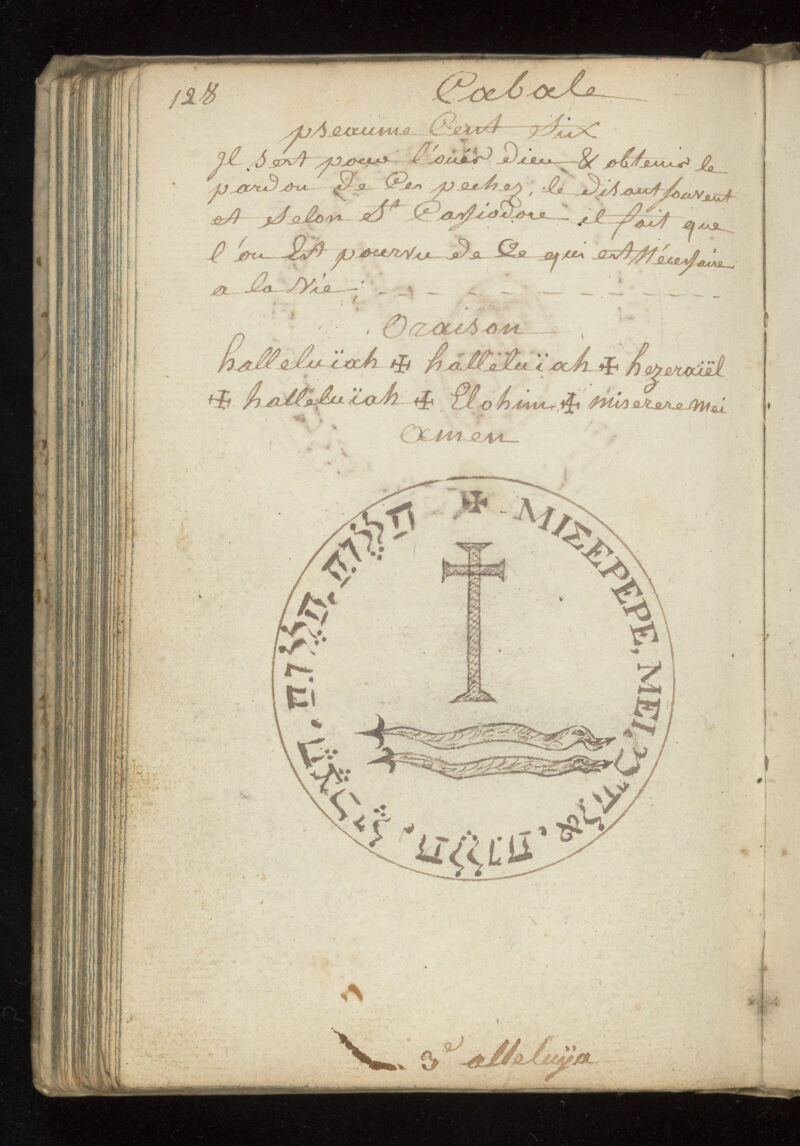 128
Cabale
pseaume Cent Six
Il sert pour l'ouër Dieu & obtenir le
pardon de Ces pechez, le disant souvent
et selon St Cassiodore il fait que
l'on Est pourvu de Ce qui est Nécessaire
a la Vie
Oraison
halleluïah ✠ halleluïah ✠ hezeraiël
✠ halleluïah ✠ Elohim ✠ miserere mei
amen
✠ ΜΙΣΕΡΕΡΕ, ΜΕΙ,
3e alleluÿa